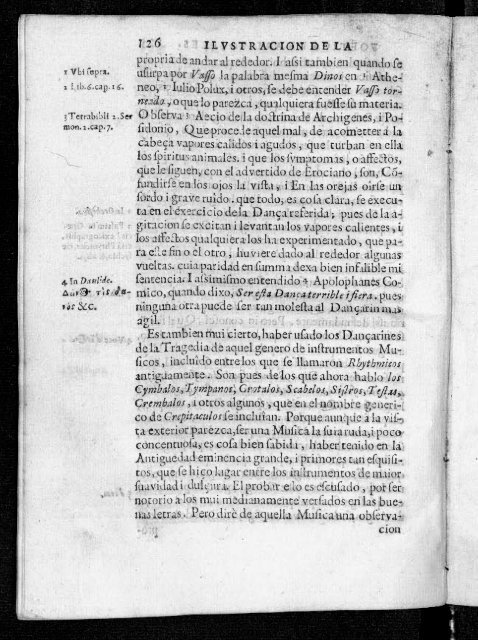 126 ILVSTRACION DE LA
propria de andar al rededor. I assi tambien quando se
usurpa por Vasso la palabra mesma Dinos en 1 Athe-
neo, 2 Iulio Polux, i otros, se debe entender Vasso tor-
neada, o que lo parezca, qualquiera fuesse su materia.
Observa 3 Aecio de la doctrina de Archigenes, i Po-
sidonio, Que procede aquel mal, de acometter a la
cabeça vapores calidos i agudos, que turban en ella
los spiritus animales. i que los symptomas, o affectos,
que le siguen, con el advertido de Erociano, son, Cō-
fundirse en los ojos la vista, i En las orejas oirse un
sordo i grave ruido. que todo, es cosa clara, se execu-
ta en el exercicio de la Dança referida; pues de la a-
gitacion se excitan i levantan los vapores calientes, i
los affectos qualquiera los ha experimentado, que pa-
ra este fin o el otro, huviere dado al rededor algunas
vueltas. cuia paridad en summa dexa bien infalible mi
sentencia. I assimismo entendido 4 Apolophanes Co-
mico, quando dixo, Ser esta Dança terrible i fiera. pues
ninguna otra puede ser tan molesta al Dançarin mas
agil.
Es tambien mui cierto, haber usado los Dançarines
de la Tragedia de aquel genero de instrumentos Mu-
sicos, incluido entre los que se llamaron Rhythmicos
antiguamente. Son pues de los que ahora hablo los
Cymbalos, Tympanos, Crotalos, Scabelos, Sistros, Testas,
Crembalos, i otros algunos, que en el nombre generi-
co de Crepitaculos se incluian. Porque aunque a la vis-
ta exterior parezca, ser una Musica la suia ruda, i poco
concentuosa, es cosa bien sabida, haber tenido en la
Antiguedad eminencia grande, i primores tan esquisi-
tos, que se hiço lugar entre los instrumentos de maior
suavidad i dulçura. El probar esto es escusado, por ser
notorio a los mui medianamente versados en las bue-
nas letras. Pero dirè de aquella Musica una observa-
cion
1 Vbi supra.
2 Lib. 6. cap. 16.
3 Tetrabibli 2. Ser
mon. 2. cap. 7.
4 In Danide.
vòs &c.